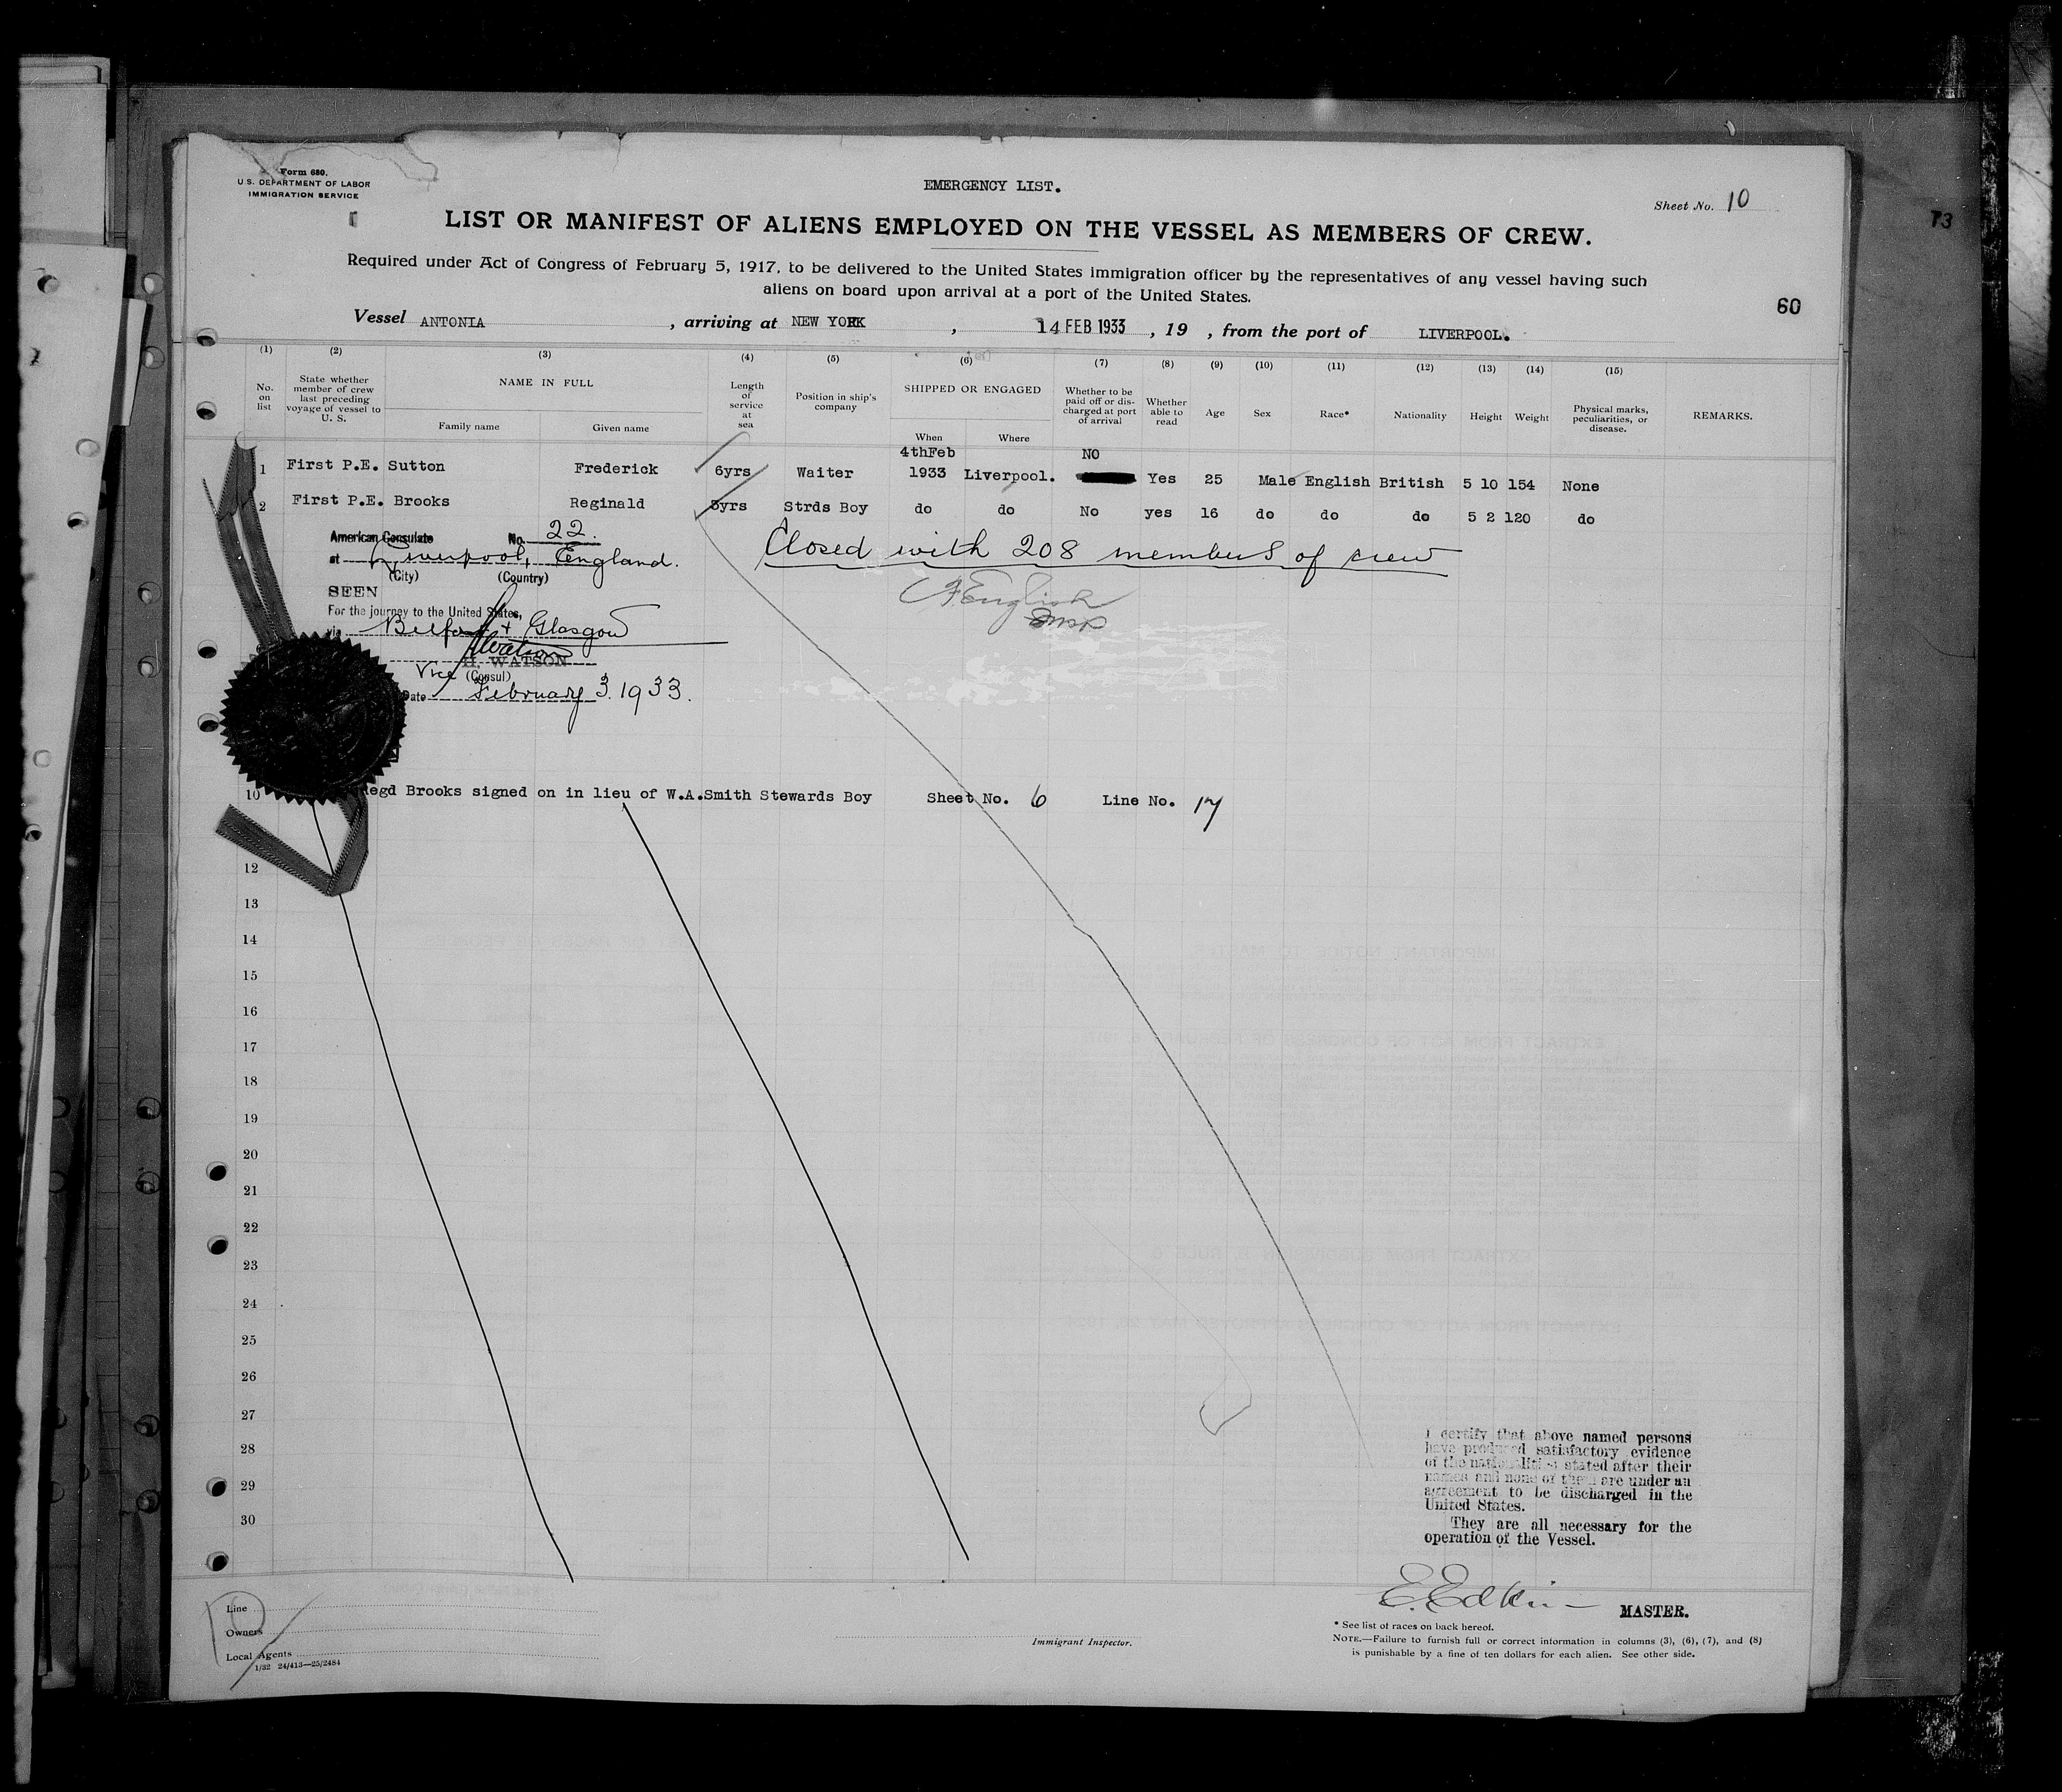 Form 680.
U.S. DEPARTMENT OF LABOR
IMMIGRATION SERVICE
EMERGENCY LIST.
Sheet No. 10
73
LIST OR MANIFEST OF ALIENS EMPLOYED ON THE VESSEL AS MEMBERS OF CREW.
Required under Act of Congress of February 5, 1917, to be delivered to the United States immigration officer by the representatives of any vessel having such
aliens on board upon arrival at a port of the United States.
60
Vessel ANTONIA , arriving at NEW YORK , 14 FEB 1933 , 19 , from the port of LIVERPOOL.
(1) (2) (3) (4) (5) (6) (7) (8) (9) (10) (11) (12) (13) (14) (15)
No. on list
State whether member of crew last preceding voyage of vessel to U. S.
NAME IN FULL
Family name
Given name
Length of service at sea
Position in ship's company
SHIPPED OR ENGAGED
When
Where
Whether to be paid off or discharged at port of arrival
Whether able to read
Age
Sex
Race*
Nationality
Height
Weight
Physical marks, peculiarities, or disease.
REMARKS.
4thFeb NO
1 First P.E. Sutton Frederick 6yrs Waiter 1933 Liverpool. Yes 25 Male English British 5 10 154 None
2 First P.E. Brooks Reginald yrs Strds Boy do do No yes 16 do do do 5 2 120 do
American Consulate No. 22.
at Liverpool, England.
(City) (Country)
Closed with 208 members of crew
SEEN
English
Insp
For the journey to the United States,
via Belfast + Glasgow
Watson
H. WATSON
Vice (Consul)
Date February 3. 1933.
10 Regd Brooks signed on in lieu of W.A.Smith Stewards Boy Sheet No. 6 Line No. 17
12
13
14
15
16
17
18
19
20
21
22
23
24
25
26
27
28
29
30
I certify that above named persons
have produced satisfactory evidence
of the nationalities stated after their
names and none of them are under an
agreement to be discharged in the
United States.
They are all necessary for the
operation of the Vessel.
E. Edkin MASTER.
Line
Owners
Local Agents
1/32 24/413—25/2484
Immigrant Inspector.
* See list of races on back hereof.
NOTE.—Failure to furnish full or correct information in columns (3), (6), (7), and (8)
is punishable by a fine of ten dollars for each alien. See other side.